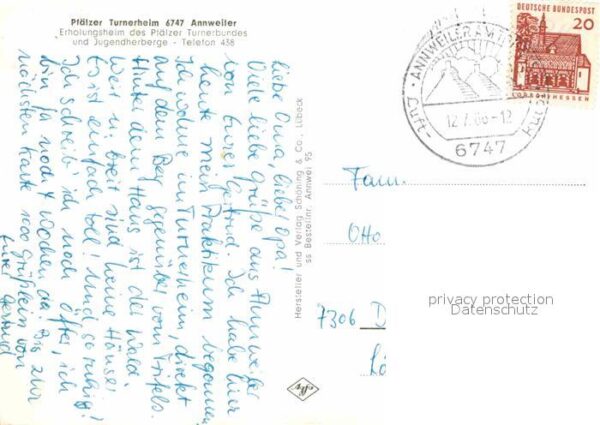 Pfälzer Turnerheim 6747 Annweiler
Erholungsheim des Pfälzer Turnerbundes
und Jugendherberge - Telefon 438
Liebe Oma, lieber Opa!
Viele liebe Grüße aus Annweiler
von Eurer Gertrud. Ich habe hier
heute mein Praktikum begonnen.
Ich wohne im Turnerheim, direkt
auf dem Berg gegenüber vom Trifels.
Hinter dem Haus ist der Wald.
Weit u. breit sind keine Häuser.
Es ist einfach toll! Und so ruhig!
Ich schreib' ich noch öfter, ich
bin ja noch Wochen da. Bis zur
nächsten Karte 1000 Grüßlein von
Eurer Gertrud
Hersteller und Verlag Schöning & Co., Lübeck
ss Bestellnr. Annwei 95
DEUTSCHE BUNDESPOST
20
LORSCH/HESSEN
ANNWEILER A. TRIFELS
Luft-
12.7.66-12
6747
Fam.
Otto
7306 D
privacy protection
Datenschutz